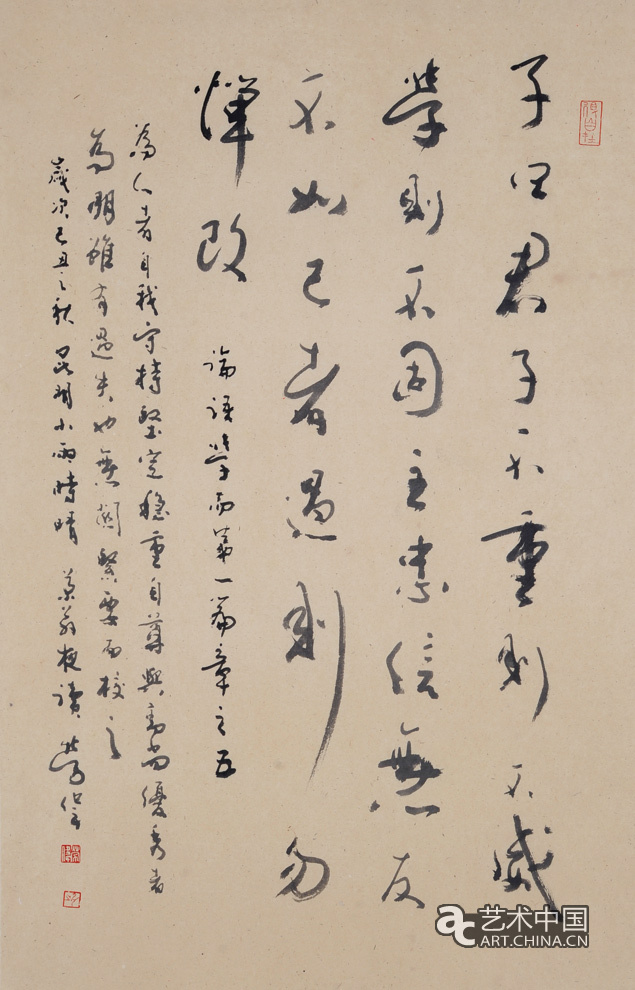 子曰君子不重則不威
學則不固主忠信無友
不如己者過則勿
憚改
論語學而第一篇章之五
為人者自我守持堅定穩重自尊與高尚優秀者
為朋雖有過失也無關緊要而校之
歲次己丑之秋 昆明小雨時晴 夜讀
艺术中国
ART.CHINA.CN